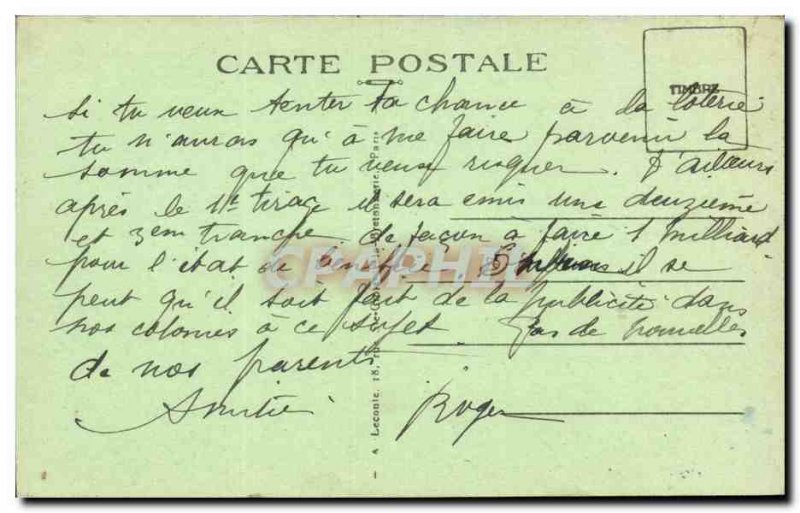 CARTE POSTALE
TIMBRE
si tu veux tenter ta chance à la loterie
tu n'auras qu'à me faire parvenir la
somme que tu veux risquer. D'ailleurs
après le 1er tirage il sera emis une deuzième
et 3em tranche de façon à faire 1 milliard
pour l'état de benefice il se
peut qu'il soit fait de la publicité dans
nos colonies à ce sujet pas de nouvelles
de nos parents
Amitié Roger
A Leconte, 18, Paris
CPAPHIL